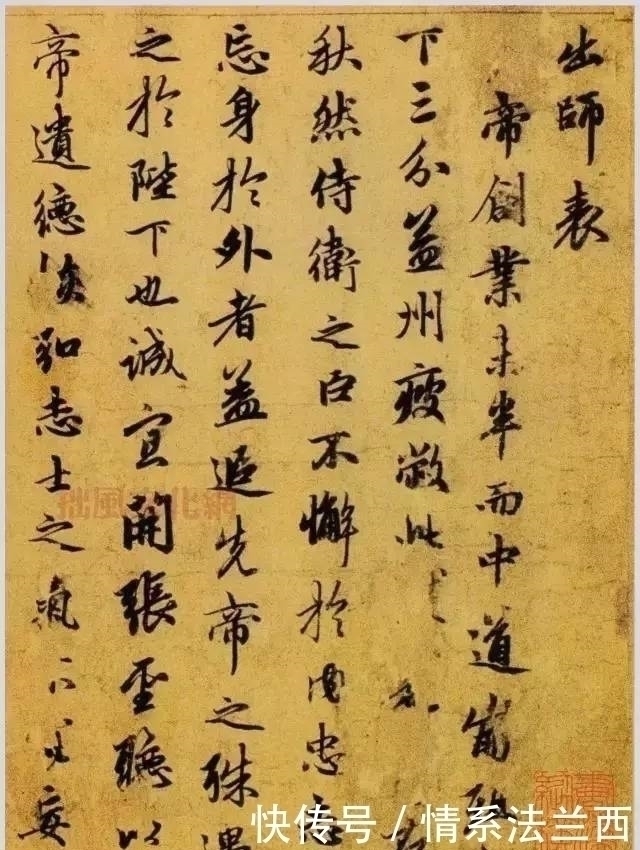 出師表
帝創業未半而中道崩殂
下三分益州疲敝此
秋然侍衛之臣不懈於內忠
忘身於外者蓋追先帝之殊遇
之於陛下也誠宜開張聖聽以
帝遺德恢弘志士之氣不宜妄
快传号/情系法兰西